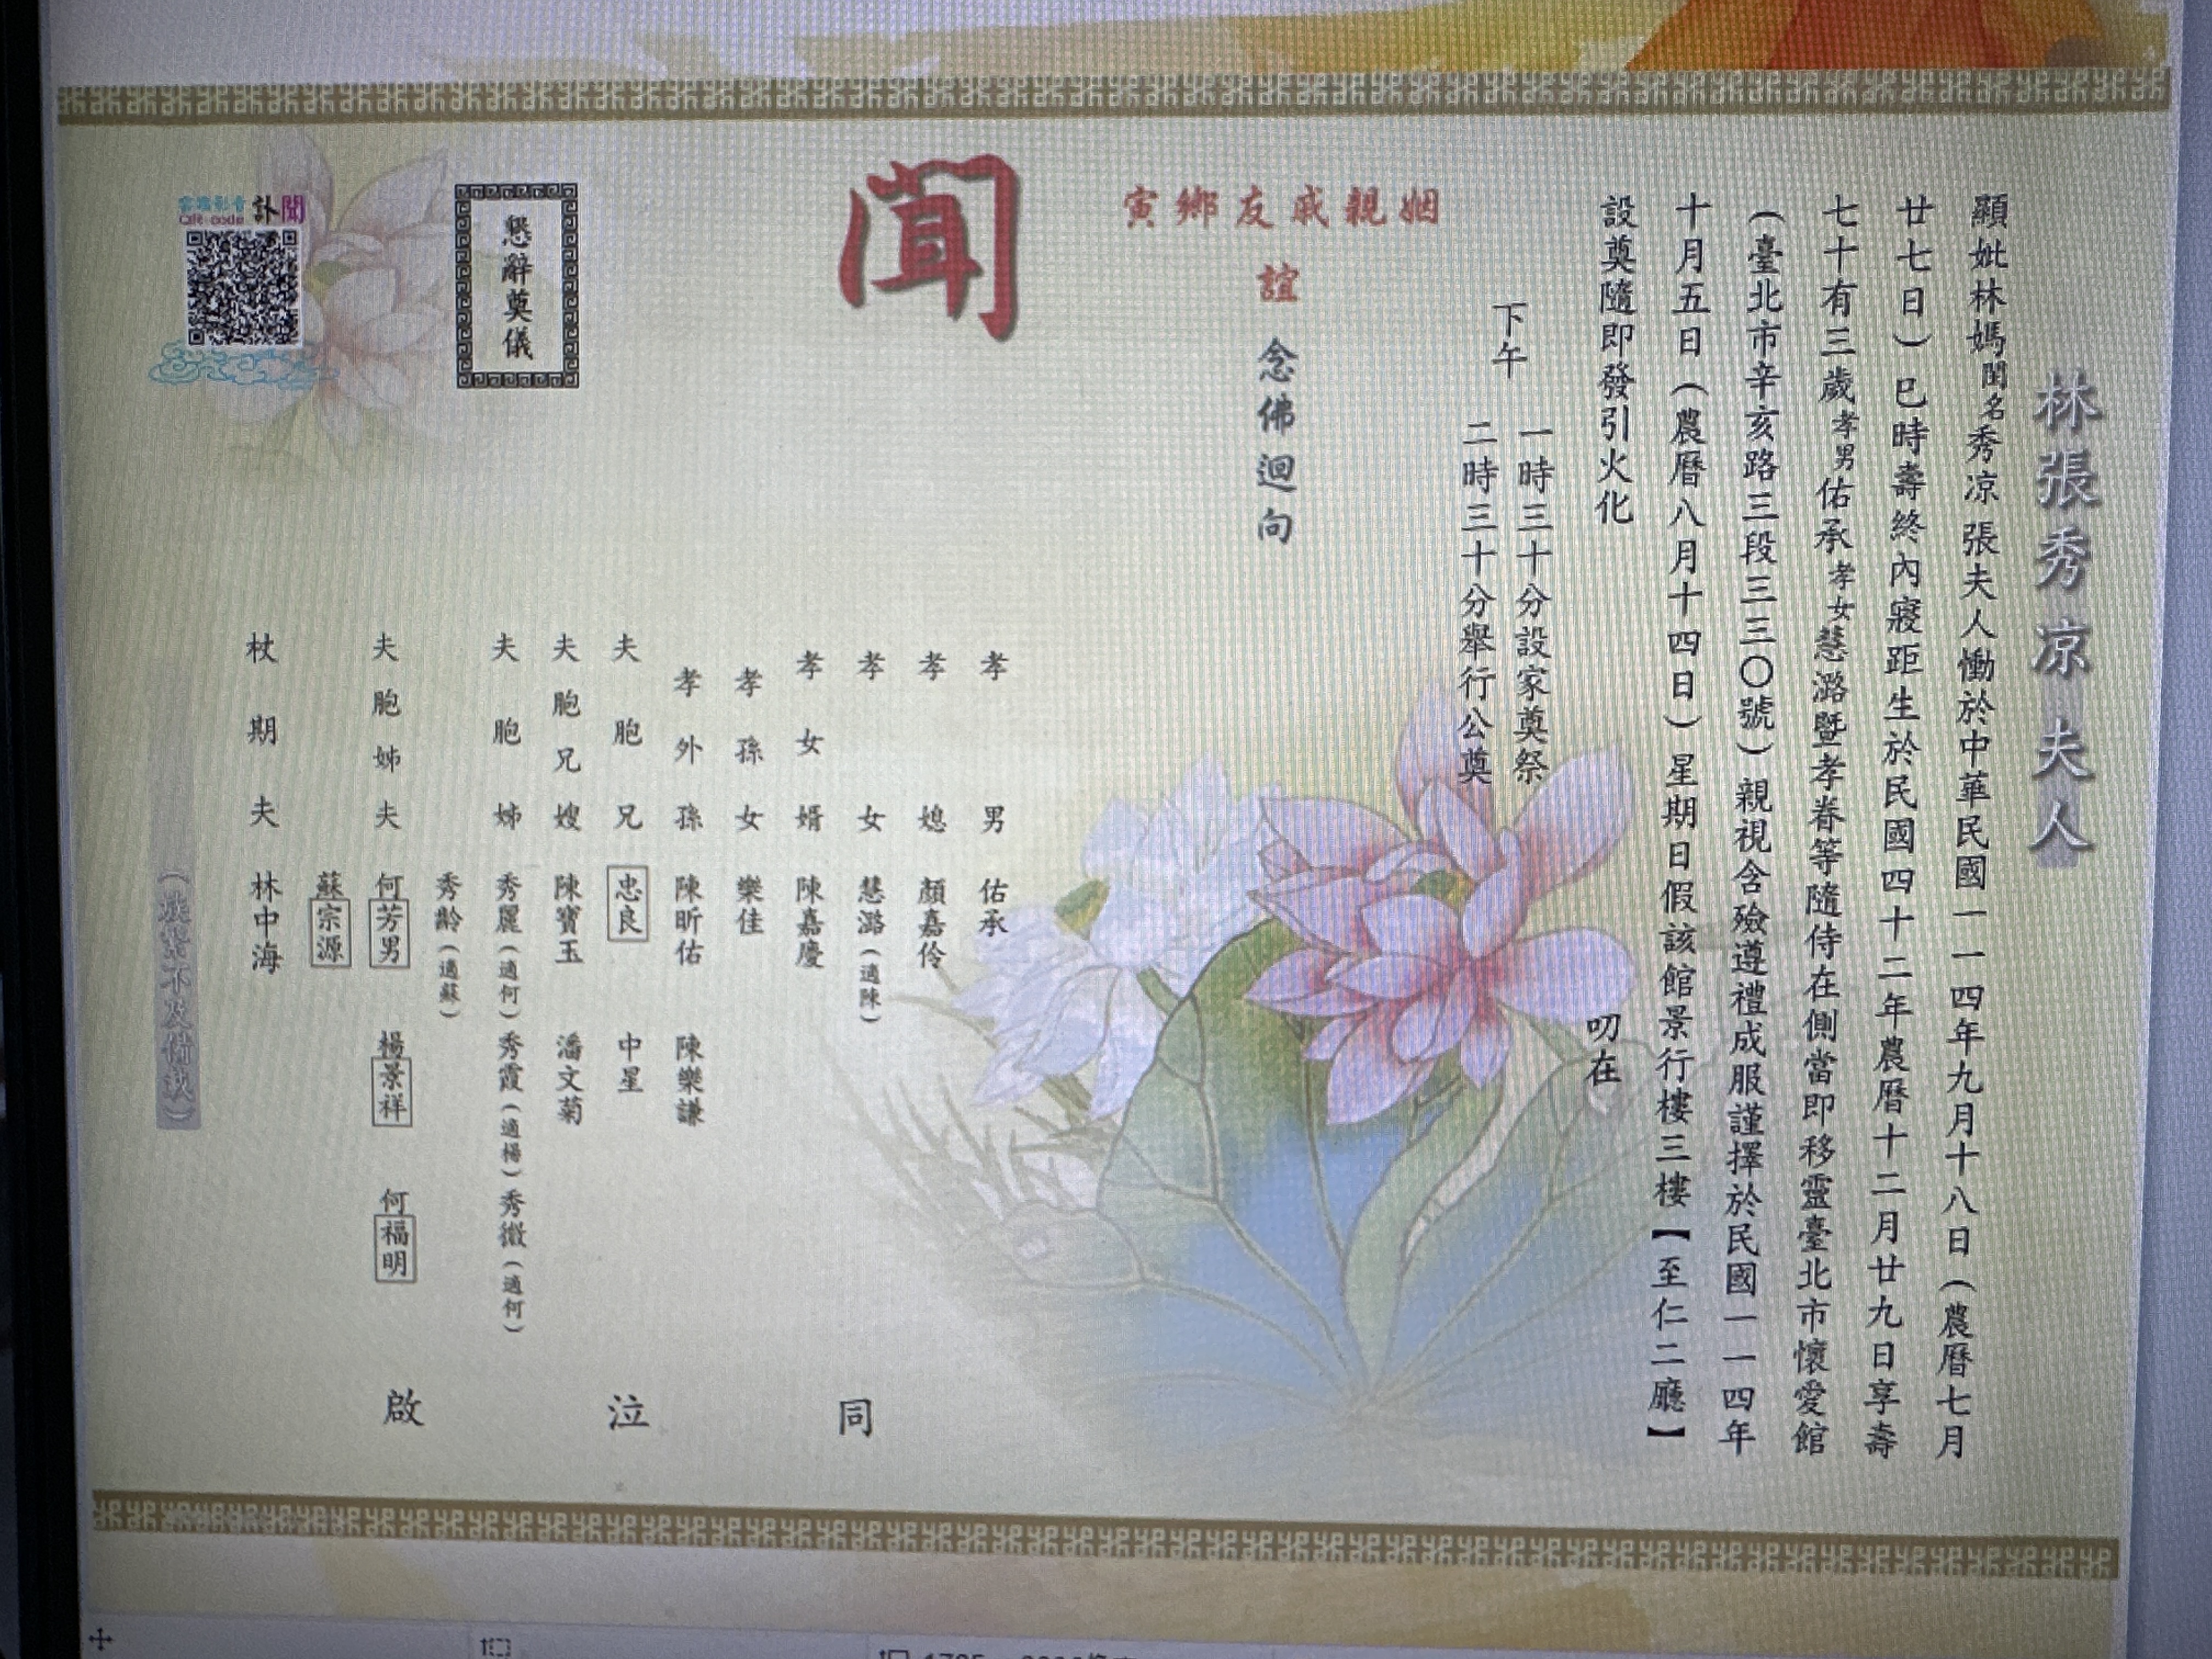 林張秀凉夫人
顯妣林媽閨名秀凉 張夫人慟於中華民國一一四年九月十八日（農曆七月
廿七日）巳時壽終內寢距生於民國四十二年農曆十二月廿九日享壽
七十有三歲孝男佑承孝女慧潞暨孝眷等隨侍在側當即移靈臺北市懷愛館
（臺北市辛亥路三段三三〇號）親視含殮遵禮成服謹擇於民國一一四年
十月五日（農曆八月十四日）星期日假該館景行樓三樓【至仁二廳】
設奠隨即發引火化 叨在
下午
一時三十分設家奠祭
二時三十分舉行公奠
姻親戚友鄉寅
誼 念佛迴向
聞
孝男 佑承
孝媳 顏嘉伶
孝女 慧潞（適陳）
孝女婿 陳嘉慶
孝孫女 樂佳
孝外孫 陳昕佑 陳樂謙
夫胞兄 忠良 中星
夫胞兄嫂 陳寶玉 潘文菊
夫胞姊 秀麗（適何）秀霞（適楊）秀微（適何）
秀齡（適蘇）
夫胞姊夫 何芳男 楊景祥 何福明
蘇宗源
杖期夫 林中海
同泣啟
（族繁不及備載）
懇辭奠儀
訃聞
雲端影音
QR code